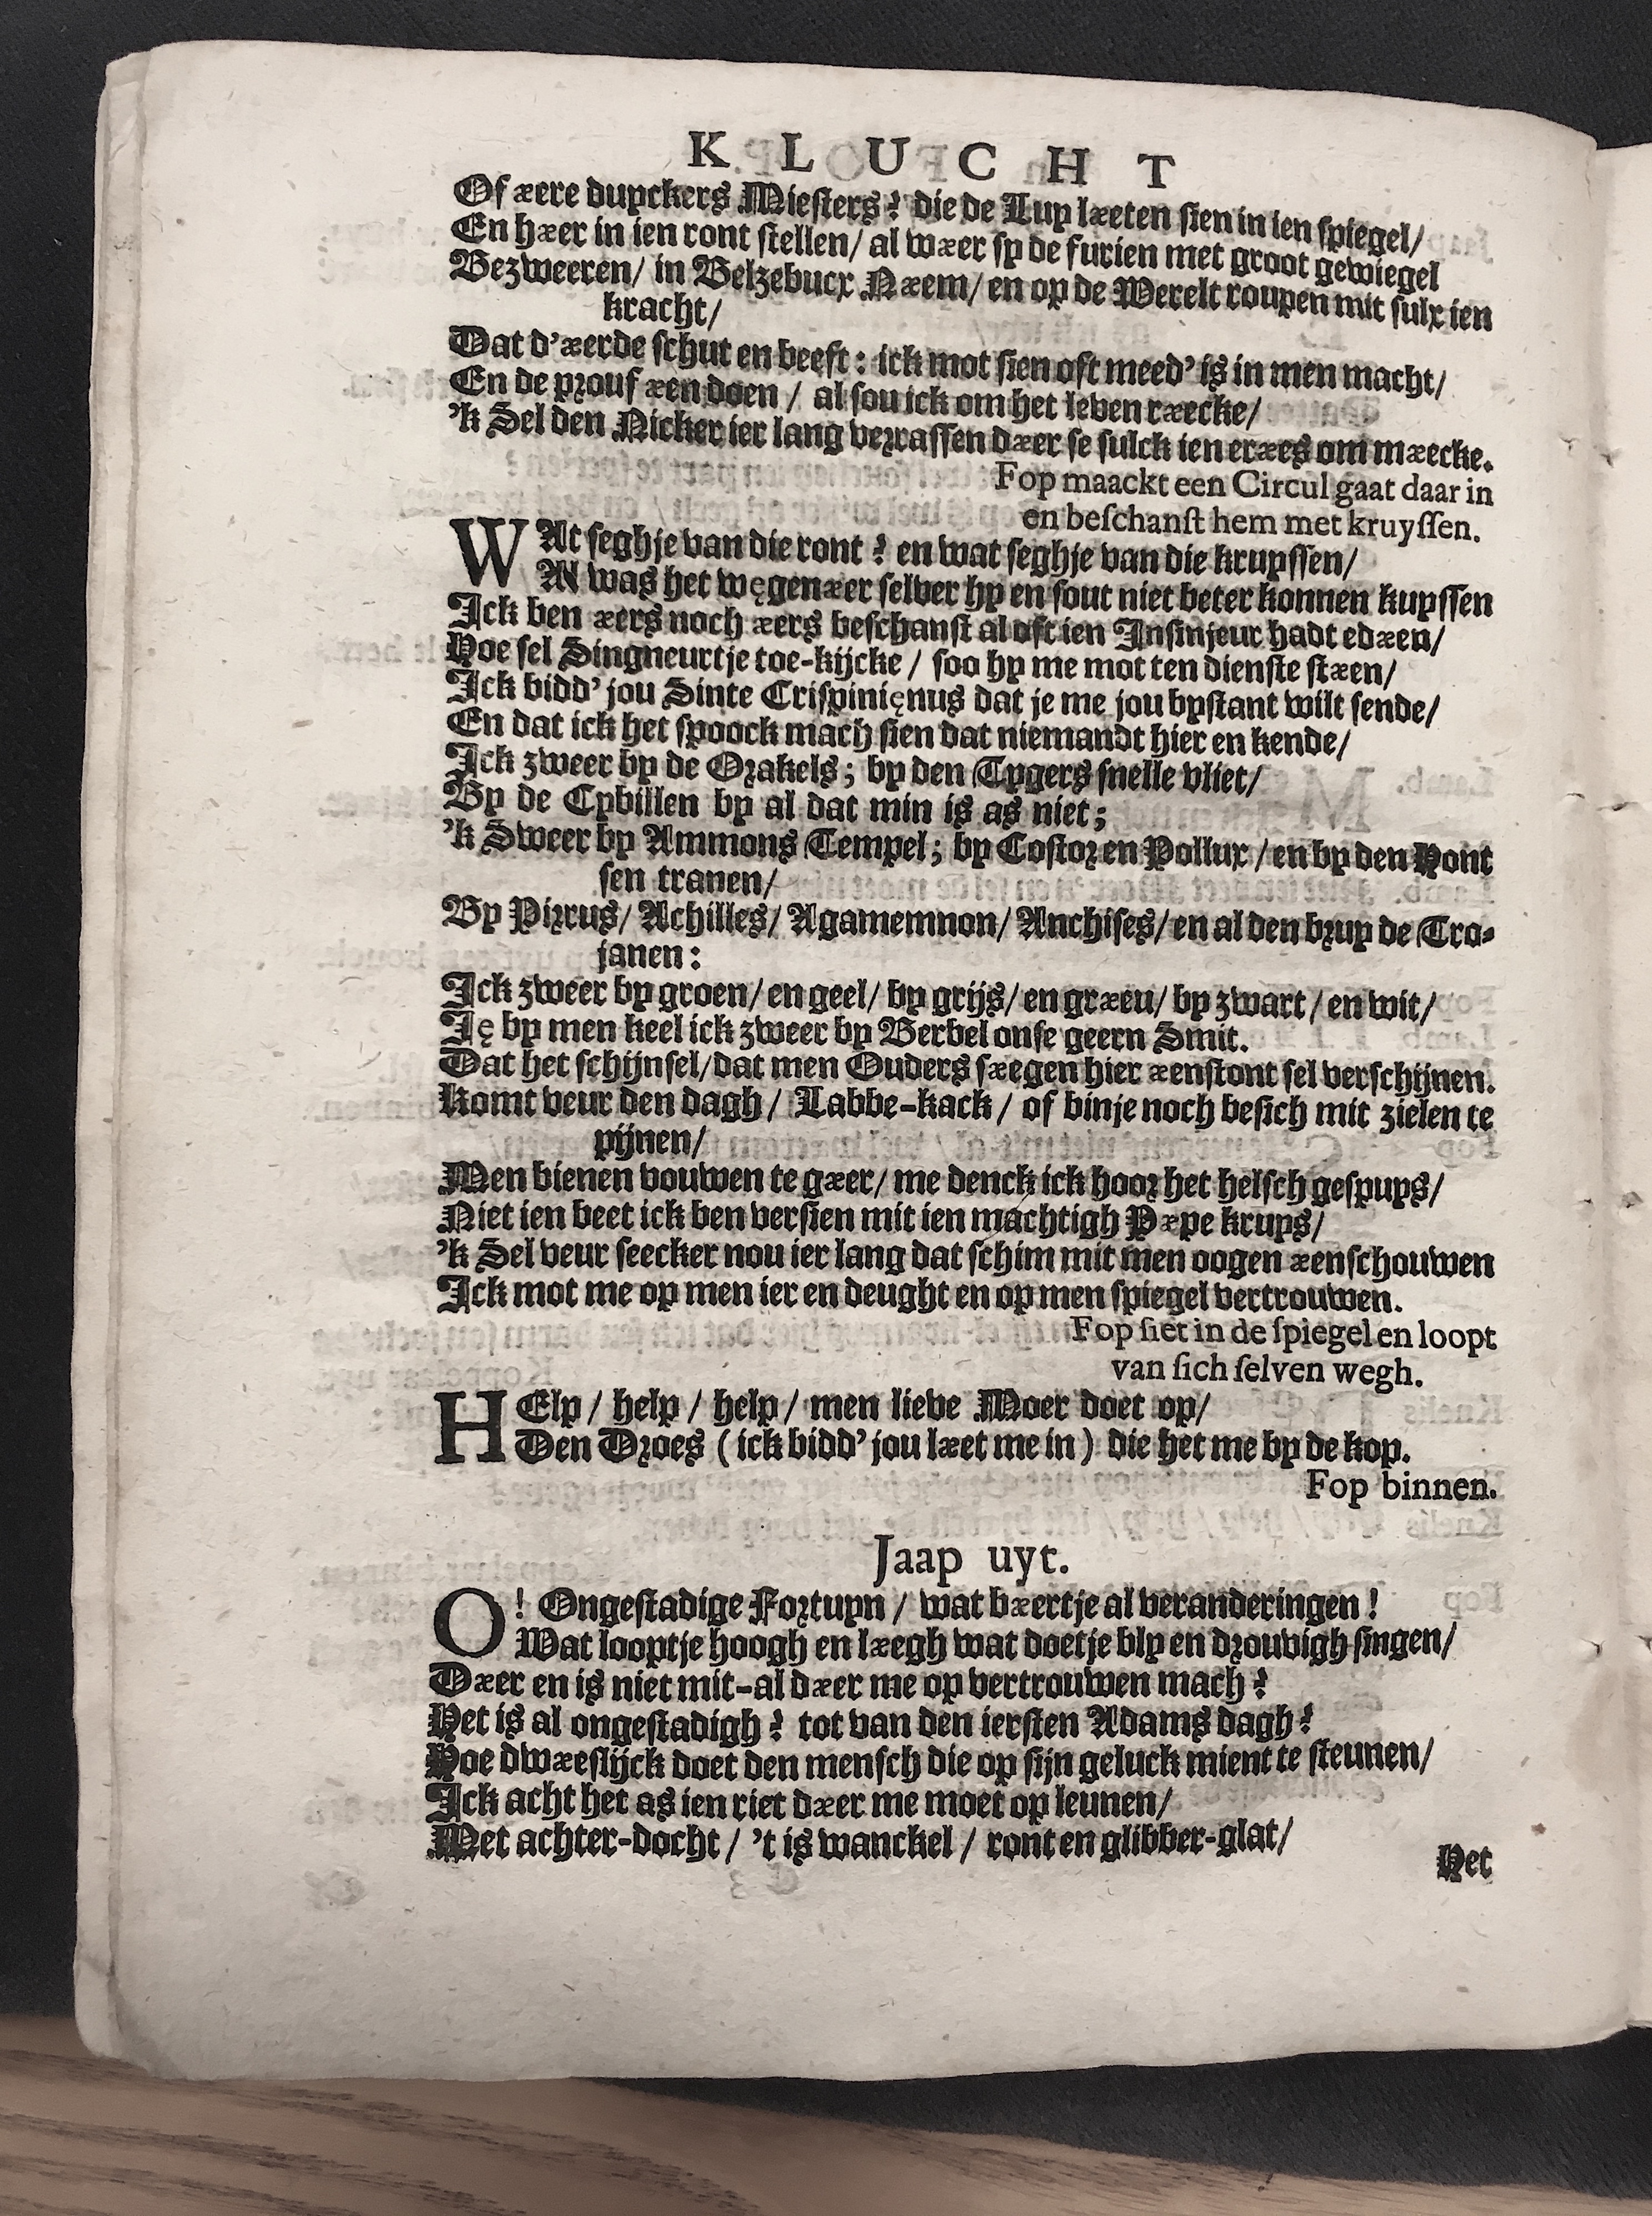 KLUCHT
Of ære duyckers Miesters? die de Luy læeten sien in ien spiegel/
En hær in ien ront stellen/ al wær sy de furien met groot gewiegel
Bezweeren/ in Belzebucx Næm/ en op de Werelt roupen mit sulx ien
kracht/
Dat d'ærde schut en beeft: ick mot sien oft meed' is in men macht/
En de prouf æn doen/ al sou ick om het leven ræcke/
'k Sel den Nicker ier lang verrassen dær se sulck ien eræs om mæcke.
Fop maackt een Circul gaat daar in
en beschanst hem met kruyssen.
WAt seghje van die ront? en wat seghje van die kruyssen/
Al was het węgenær selver hy en sout niet beter konnen kuyssen
Ick ben ærs noch ærs beschanst al oft ien Insinjeur hadt edæn/
Hoe sel Singneurtje toe-kijcke/ soo hy me mot ten dienste stæn/
Ick bidd' jou Sinte Crispinięnus dat je me jou bystant wilt sende/
En dat ick het spoock mach sien dat niemandt hier en kende/
Ick zweer by de Orakels; by den Tygers snelle vliet/
By de Cybillen by al dat min is as niet;
'k Sweer by Ammons Tempel; by Costor en Pollux/ en by den Hont
sen tranen/
By Pirrus/ Achilles/ Agamemnon/ Anchises/ en al den bruy de Tro-
janen:
Ick zweer by groen/ en geel/ by grijs/ en græu/ by zwart/ en wit/
Ię by men keel ick zweer by Berbel onse geern Smit.
Dat het schijnsel/ dat men Ouders sægen hier ænstont sel verschijnen.
Komt veur den dagh/ Labbe-kack/ of binje noch besich mit zielen te
pijnen/
Men bienen vouwen te gær/ me denck ick hoor het helsch gespuys/
Niet ien beet ick ben versien mit ien machtigh Pæpe kruys/
'k Sel veur seecker nou ier lang dat schim mit men oogen ænschouwen
Ick mot me op men ier en deught en op men spiegel vertrouwen.
Fop siet in de spiegel en loopt
van sich selven wegh.
HElp/ help/ help/ men lieve Moer doet op/
Den Droes (ick bidd' jou læt me in) die het me by de kop.
Fop binnen.
Jaap uyt.
O! Ongestadige Fortuyn/ wat bærtje al veranderingen!
Wat looptje hoogh en lægh wat doetje bly en drouvigh singen/
Dær en is niet mit-al dær me op vertrouwen mach?
Het is al ongestadigh? tot van den iersten Adams dagh?
Hoe dwæslijck doet den mensch die op sijn geluck mient te steunen/
Ick acht het as ien riet dær me moet op leunen/
Met achter-docht/ 't is wanckel/ ront en glibber-glat/
Het